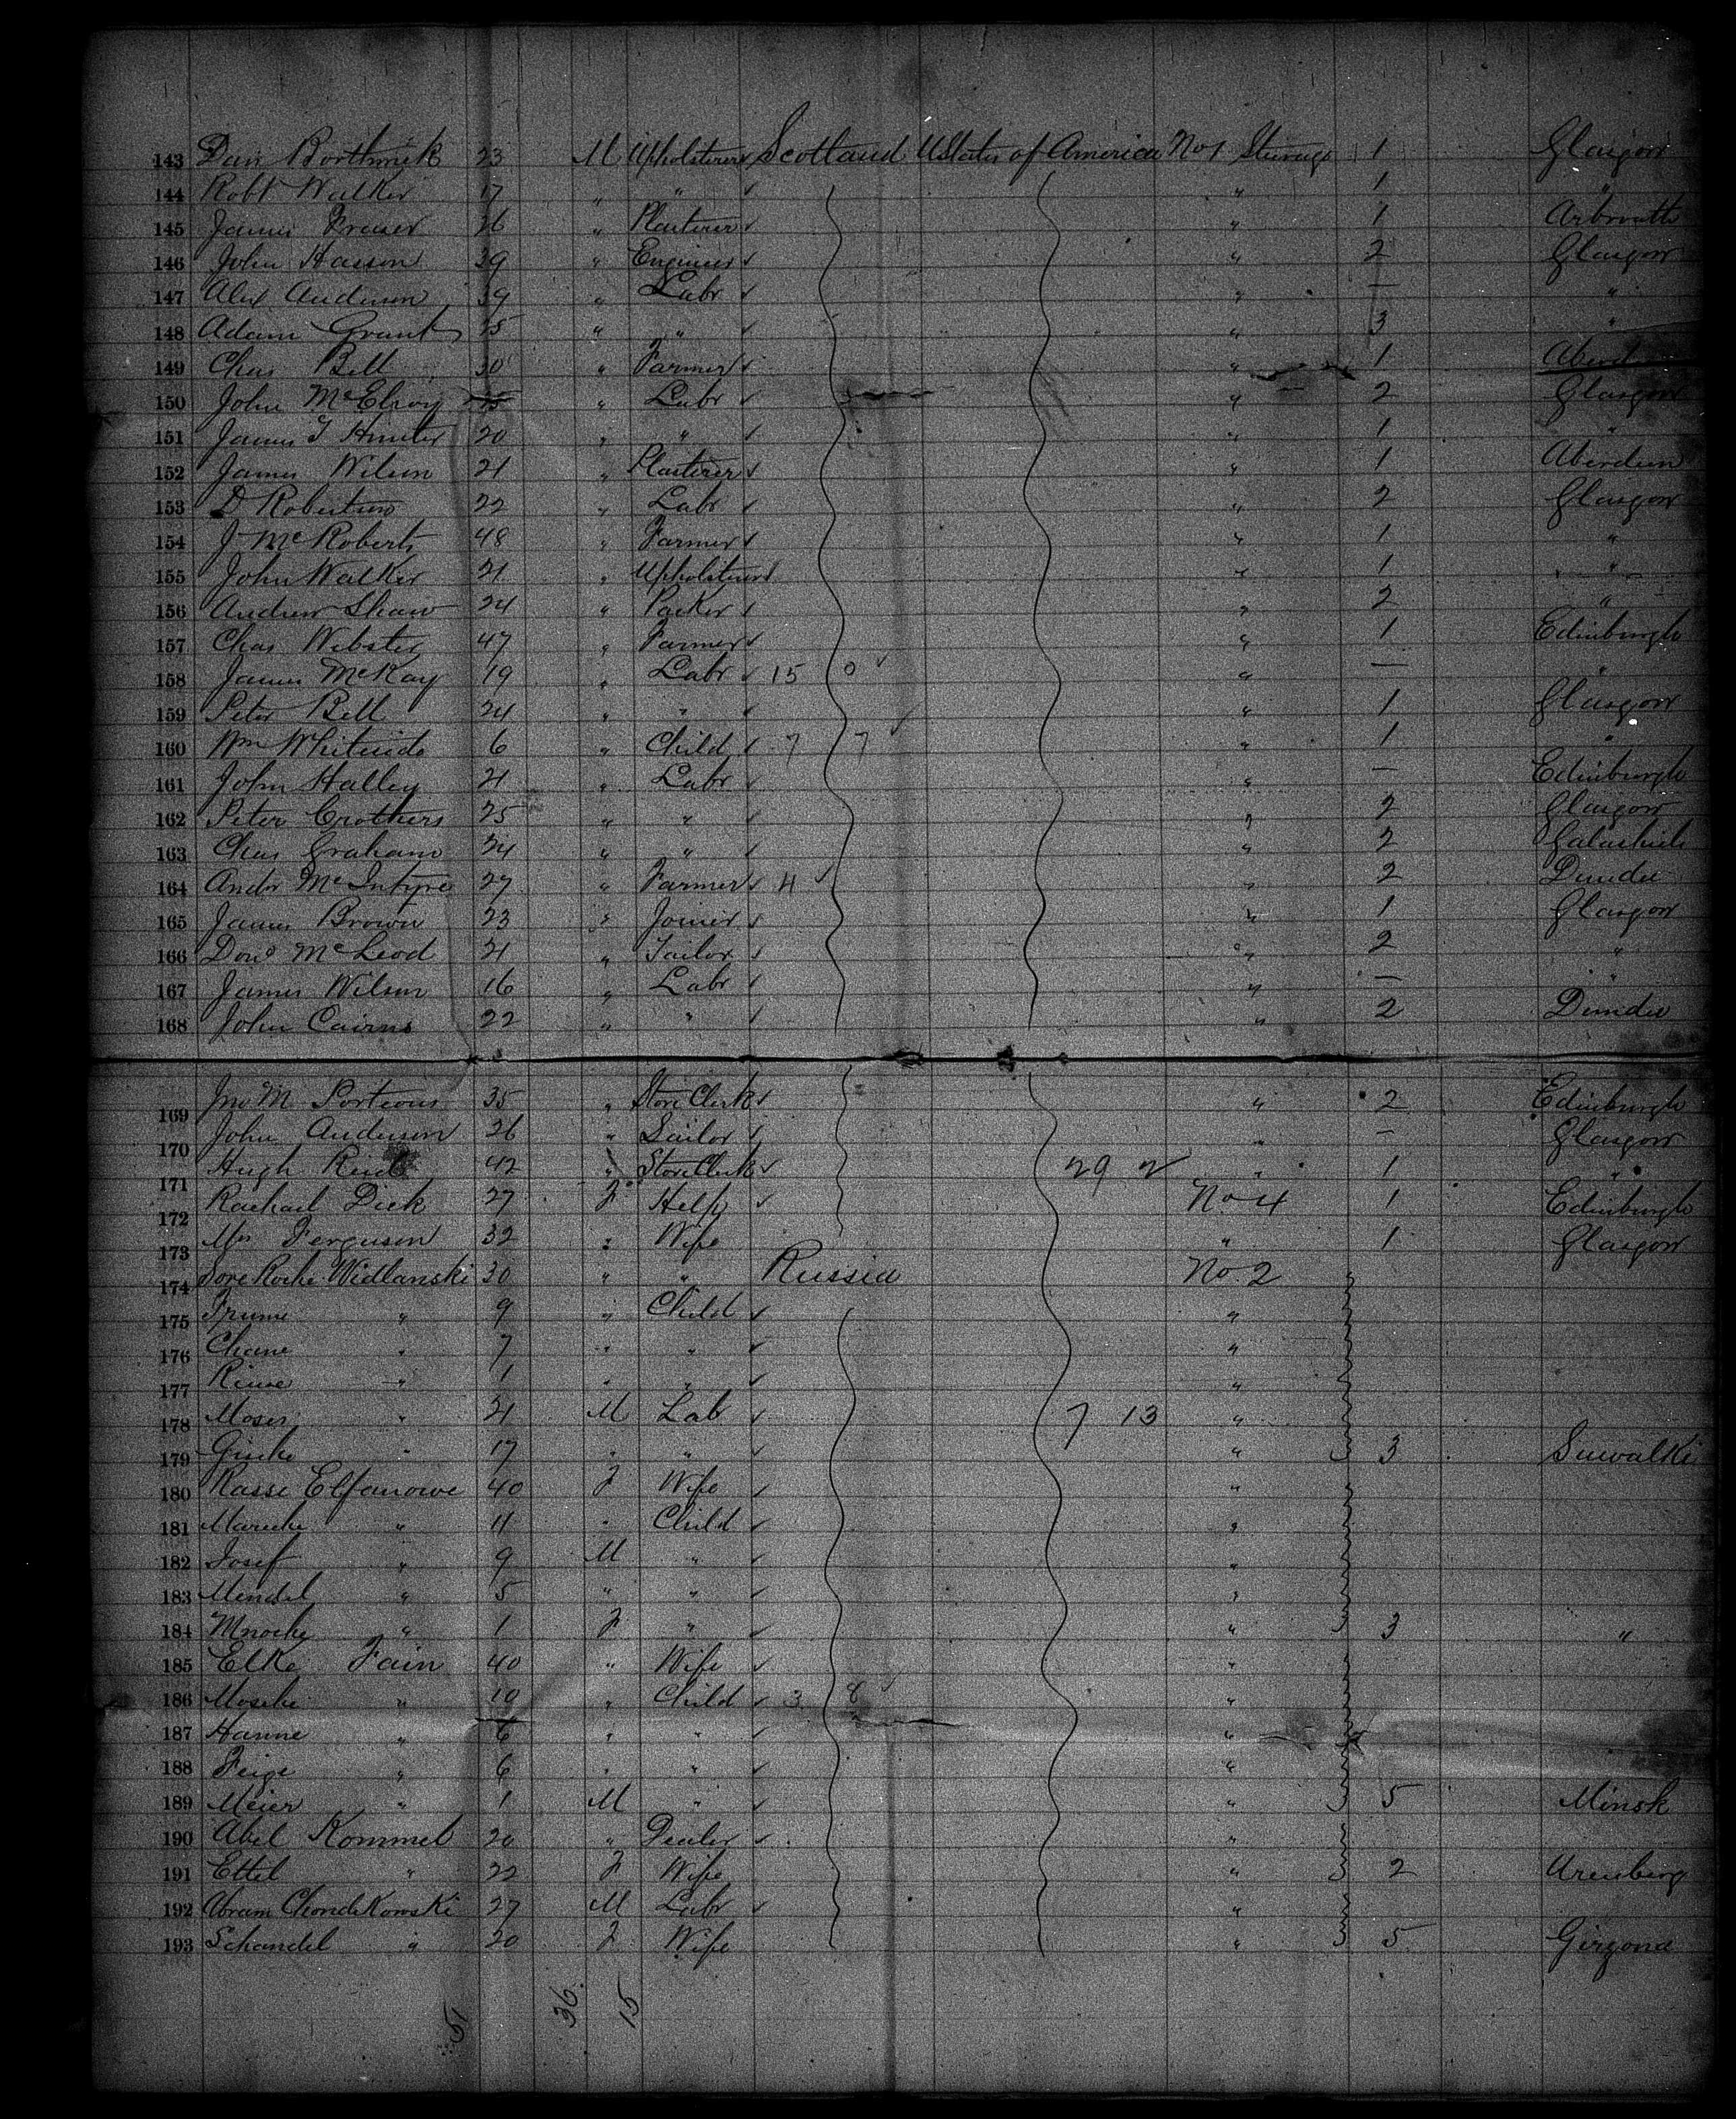 143 Dan Borthwick 23 M Upholsterer Scotland UStates of America No 1 Steerage 1 Glasgow
144 Robt Walker 17 " " " 1 "
145 James Fraser 26 " Plasterer " 1 Arbroath
146 John Hasson 39 " Engineer " 2 Glasgow
147 Alex Anderson 39 " Labr " — "
148 Adam Grant 25 " " " 3 "
149 Chas Bell 30 " Farmer " 1
150 John McElroy " Labr " 2 Glasgow
151 James T Hunter 20 " " " 1 "
152 James Wilson 21 " Plasterer " 1 Aberdeen
153 D Robertson 22 " Labr " 2 Glasgow
154 J McRoberts 48 " Farmer " 1 "
155 John Walker 21 " Upholsterer " 1 "
156 Andrew Shaw 24 " Packer " 2 "
157 Chas Webster 47 " Farmer " 1 Edinburgh
158 James McKay 19 " Labr 15 0 " — "
159 Peter Bell 24 " " " 1 Glasgow
160 Wm Whiteside 6 " Child 7 7 " 1 "
161 John Halley 21 " Labr " — Edinburgh
162 Peter Crothers 25 " " " 2 Glasgow
163 Chas Graham 24 " " " 2 Galashiels
164 Andw McIntyre 27 " Farmer 4 " 2 Dundee
165 James Brown 23 " Joiner " 1 Glasgow
166 Dond McLeod 21 " Tailor " 2 "
167 James Wilson 16 " Labr " — "
168 John Cairns 22 " " " 2 Dundee
169 Jno M Porteous 35 " Store Clerk " 2 Edinburgh
170 John Anderson 26 " Sailor " — Glasgow
171 Hugh Reid 42 " Store Clerk 29 2 " 1 "
172 Rachael Dick 27 F Help No 4 1 Edinburgh
173 Mrs Ferguson 32 " Wife " 1 Glasgow
174 Sore Roche Widlanski 30 " " Russia No. 2
175 Frume " 9 " Child "
176 Chane " 7 " " "
177 " 1 " " "
178 Moses " 21 M Lab 7 13 "
179 " 17 " " " 3 Suwalki
180 Rasse Elfanowe 40 F Wife "
181 " 11 " Child "
182 Josef " 9 M " "
183 Mendel " 5 " " "
184 Mnoche " 1 F " " 3 "
185 Elke Fain 40 " Wife "
186 Mosche " 10 " Child 3 8 "
187 Hanne " 6 " " "
188 Feige " 6 " " "
189 Meier " 1 M " " 5 Minsk
190 Abel Kommel 20 " Dealer "
191 Ettel " 22 F Wife " 2 Urenberg
192 Abram Chondikowski 27 M Labr "
193 Schandel " 20 F Wife " 5 Girgona
51 36 15